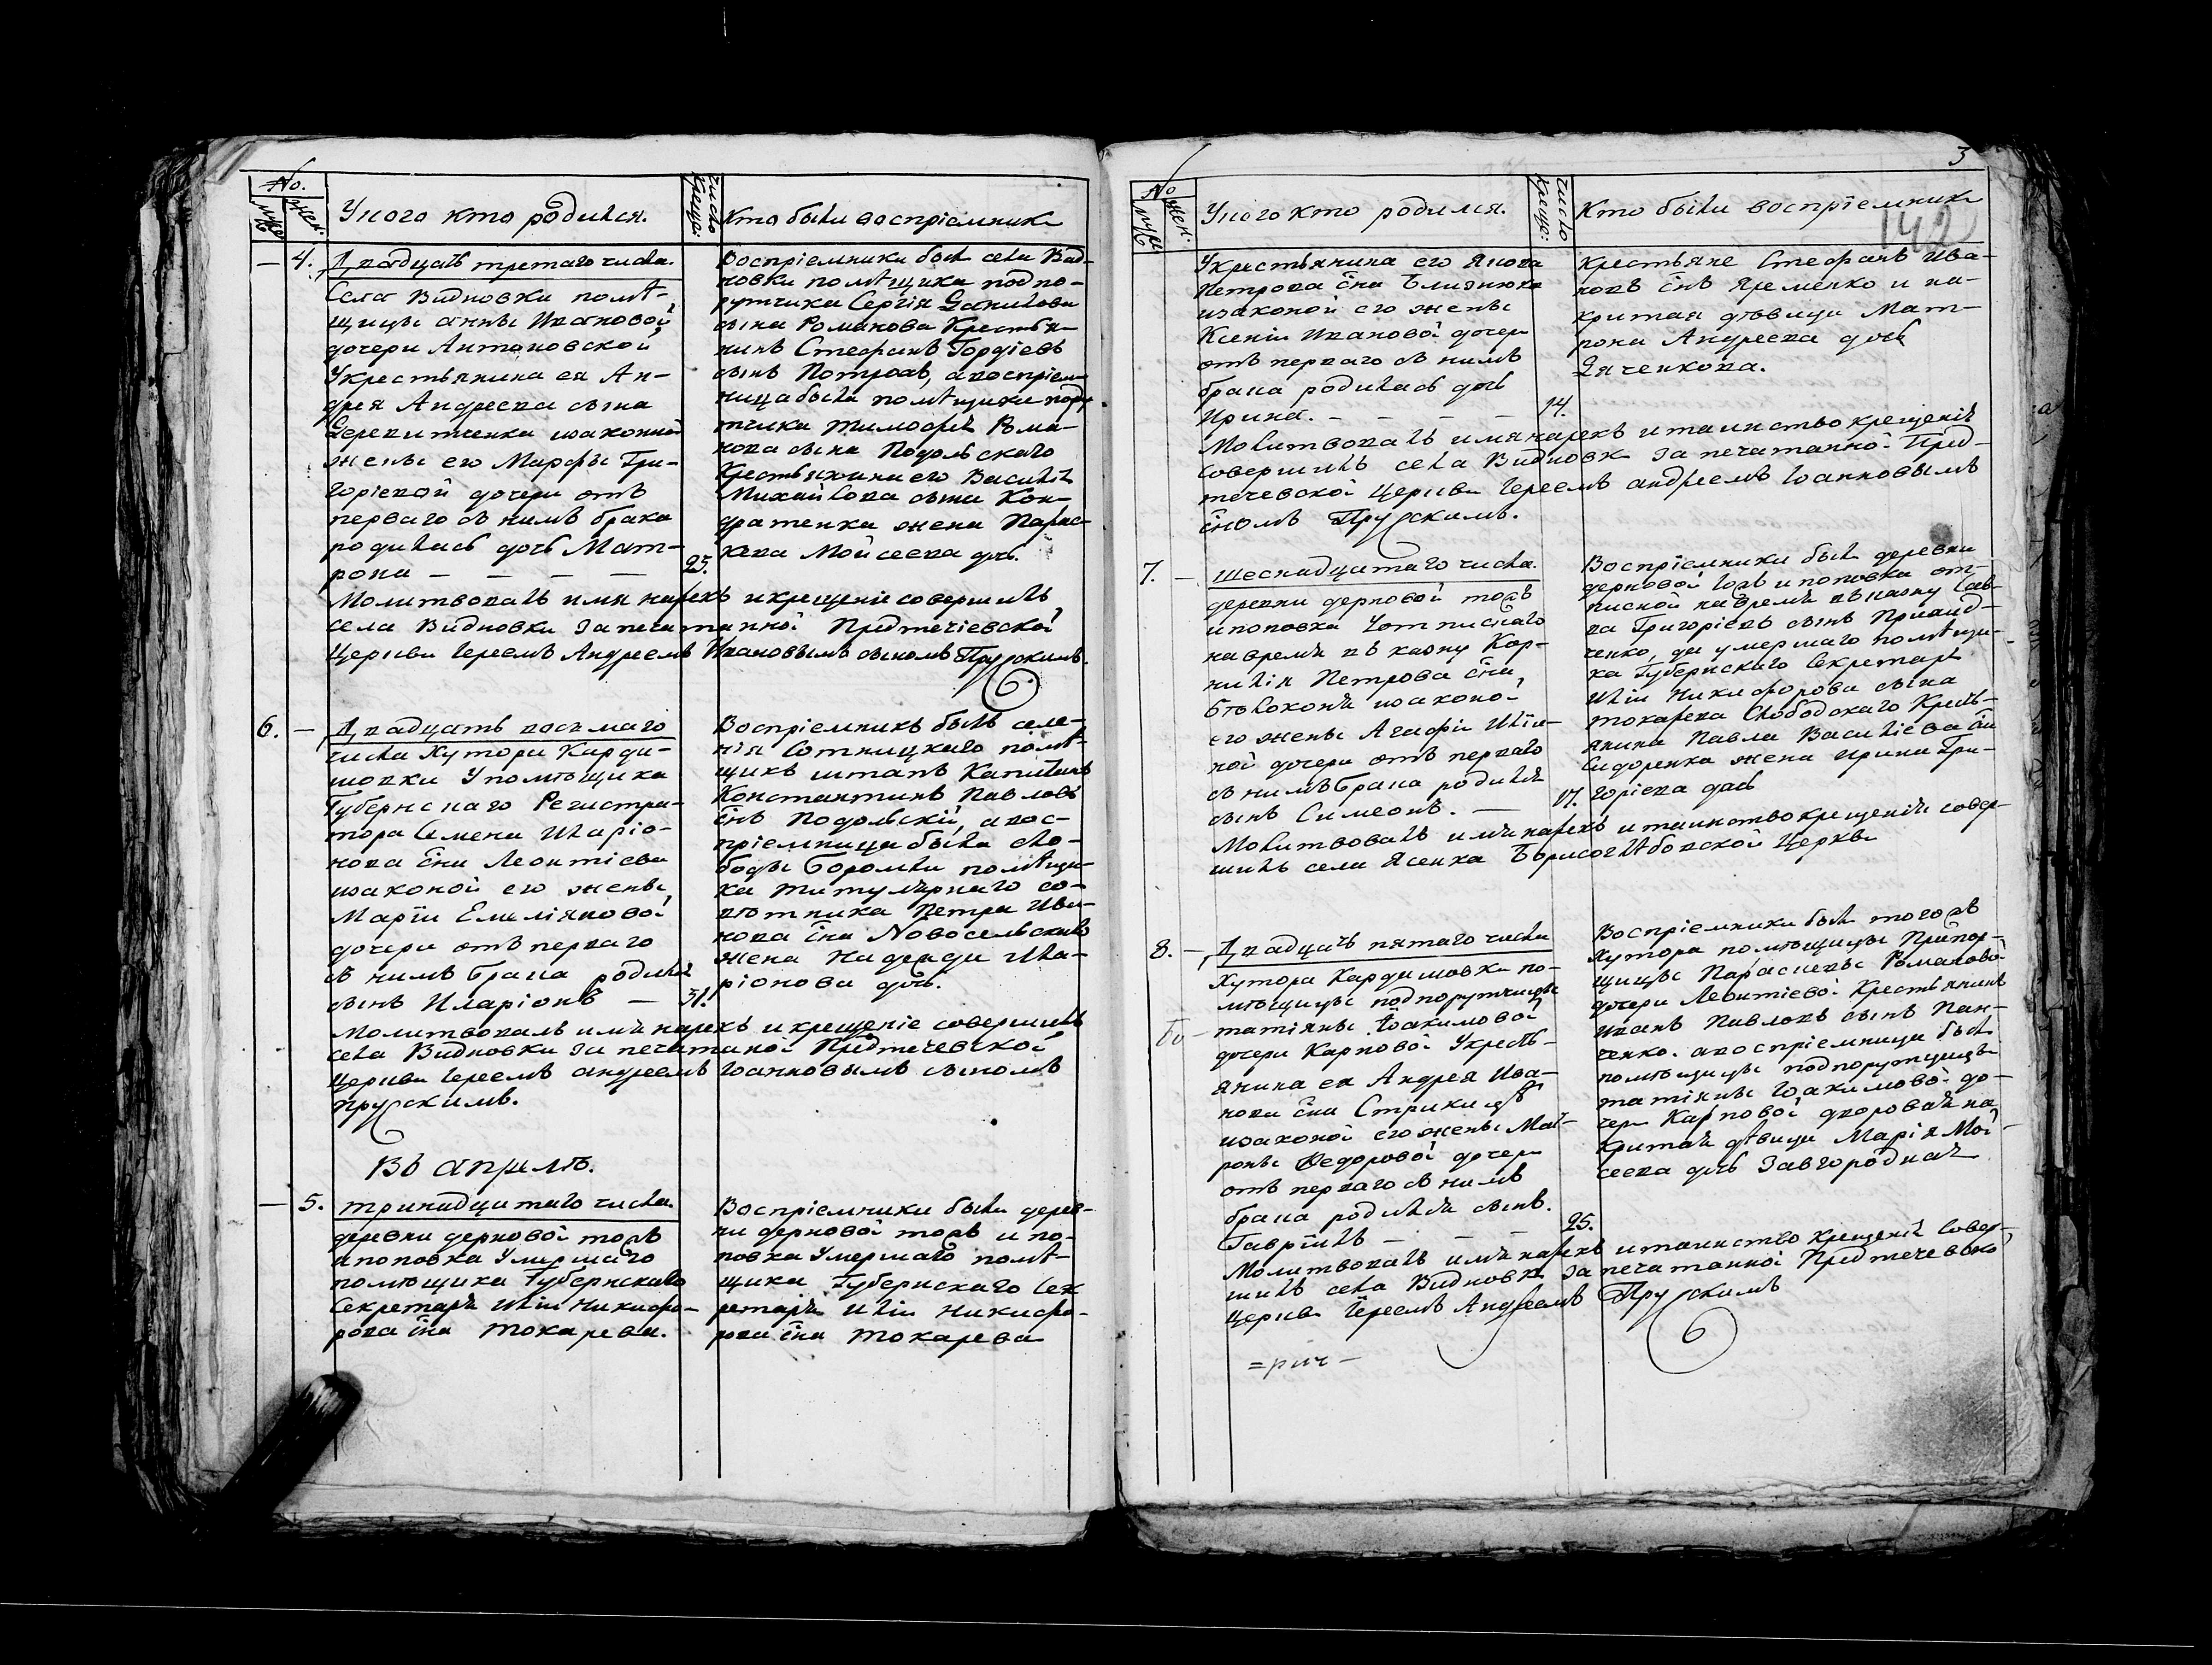 No.
муж:
жен:
У кого кто родился.
число крещ:
Кто были воспріемники
4. Двадцать третьяго числа.
Села Видновки помѣ-
щицы анны Ивановой
дочери Антоновской
Укрестьянина ея Ан-
дрея Андреева сына
Деревитченка изаконной
жены его Марфы Гри-
горіевой дочери отъ
перваго съ нимъ брака
родилась дочь Мат-
рона — — — — 25.
Воспріемники были села Вид-
новки помѣщика подпо-
рутчика Сергія Данилова
сына Романова Крестья-
нинъ Стефанъ Гордіевъ
сынъ Потроха, авоспріем-
ница была помѣщика пору
тчика тимофея Рома-
нова сына Подольскаго
Крестьянина его Василія
Михайлова сына Кон-
дратенка жена Парас-
кева Мойсеева дочь.
Молитвовалъ имя нарекъ икрещеніе совершилъ
села Видновки запечатанной Предтечіевской
Церкви Іереемъ Андреемъ Ивановымъ сыномъ Прускимъ.
6. — Двадцать восьмаго
числа Хутора Карди-
мовки Упомѣщика
Губернскаго Регистра-
тора Семена Иларіо-
нова сна Леонтіева
изаконой его жены
Маріи Емеліяновой
дочери отъ перваго
съ нимъ брака родился
сынъ Иларіонъ — 31.
Воспріемникъ былъ селе-
нія Сотницкаго помѣ-
щикъ штапъ Капитанъ
Константинъ Павловъ
снъ Подольскій, авос-
пріемница была сло-
боды Боромли помѣщи-
ка титулярнаго со-
вѣтника Петра Ива-
нова сна Новосельскаго
жена Надежда Ила-
ріонова дочь.
Молитвовалъ имя нарекъ икрещеніе совершилъ
села Видновки запечатаной Предтечевской
Церкви Іереемъ андреемъ Іоанновымъ сыномъ
Прускимъ.
Въ апрелѣ.
— 5. тринадцатаго числа.
деревни дерновой тожъ
ипоповка Умершаго
помѣщика Губернскаго
Секретаря Иліи Никифо-
рова сна токарева.
Воспріемники были дерев-
ни дерновой тожъ и по-
повка Умершаго помѣ-
щика Губернскаго Сек
ретаря Иліи Никифо-
рова сна токарева
3
142
No
муж
жен:
У кого кто родился.
число крещ:
Кто были воспріемники
Укрестьянина его Якова
Петрова сна Близнюка
изаконой его жены
Ксеніи Ивановой дочери
отъ перваго съ нимъ
брака родилась дочь
Ирина. — — — — 14.
крестьяне Стефанъ Ива-
новъ снъ Яременко и на-
критая дѣвица Мат-
рона Андреева дочь
Дяченкова.
Молитвовалъ имя нарекъ итаинство крещенія
совершилъ села Видновки запечатанной Пред-
течевской Церкви Іереемъ андреемъ Іоанновымъ
сномъ Прускимъ.
7. — шеснадцатаго числа.
деревни дерновой тожъ
ипоповка отписнаго
навремя въ казну Кор-
нилія Петрова сна
Бѣловола изаконо-
его жены Агафіи Ильи-
ной дочери отъ перваго
съ нимъ брака родился
сынъ Симеонъ. — 17.
Воспріемники были деревни
дерновой тожъ ипоповка от-
писной навремя въ казну Сав-
ва Григоріевъ сынъ
ченко, да умершаго помѣщи-
ка Губернскаго Секретаря
Иліи Никифорова сына
токарева Слободскаго Кресть-
янина Павла Василіева сна
Сидоренка жена Ирина Гри-
горіева дочь
Молитвовалъ имя нарекъ итаинство крещенія совер-
шилъ села Ясенка Борисоглѣбовской Церкви
8. — Двадцать пятаго числа
Хутора Кардимовки по-
мѣщицы подпорутчицы
татіяны Іоакимовой
дочери Карповой Укресть-
янина ея Андрея Ива-
нова сна
изаконой его жены Мат-
роны Федоровой дочери
отъ перваго съ нимъ
брака родился сынъ.
Гавріилъ — — — 25.
Воспріемники были тогожъ
хутора помѣщицы Прапор-
щицы Параскевы Романовой
дочери Леонтіевой Крестьянинъ
Иванъ Павловъ сынъ Пан-
ченко. авоспріемница была
помѣщицы подпорутчицы
татіяны Іоакимовой до-
чери Карповой дворовая на
критая дѣвица Марія Мой-
сеева дочь Завгородная
Молитвовалъ имя нарекъ итаинство крещенія совер-
шилъ села Видновки запечатанной Предтечевской
Церкви Іереемъ Андреемъ Прускимъ